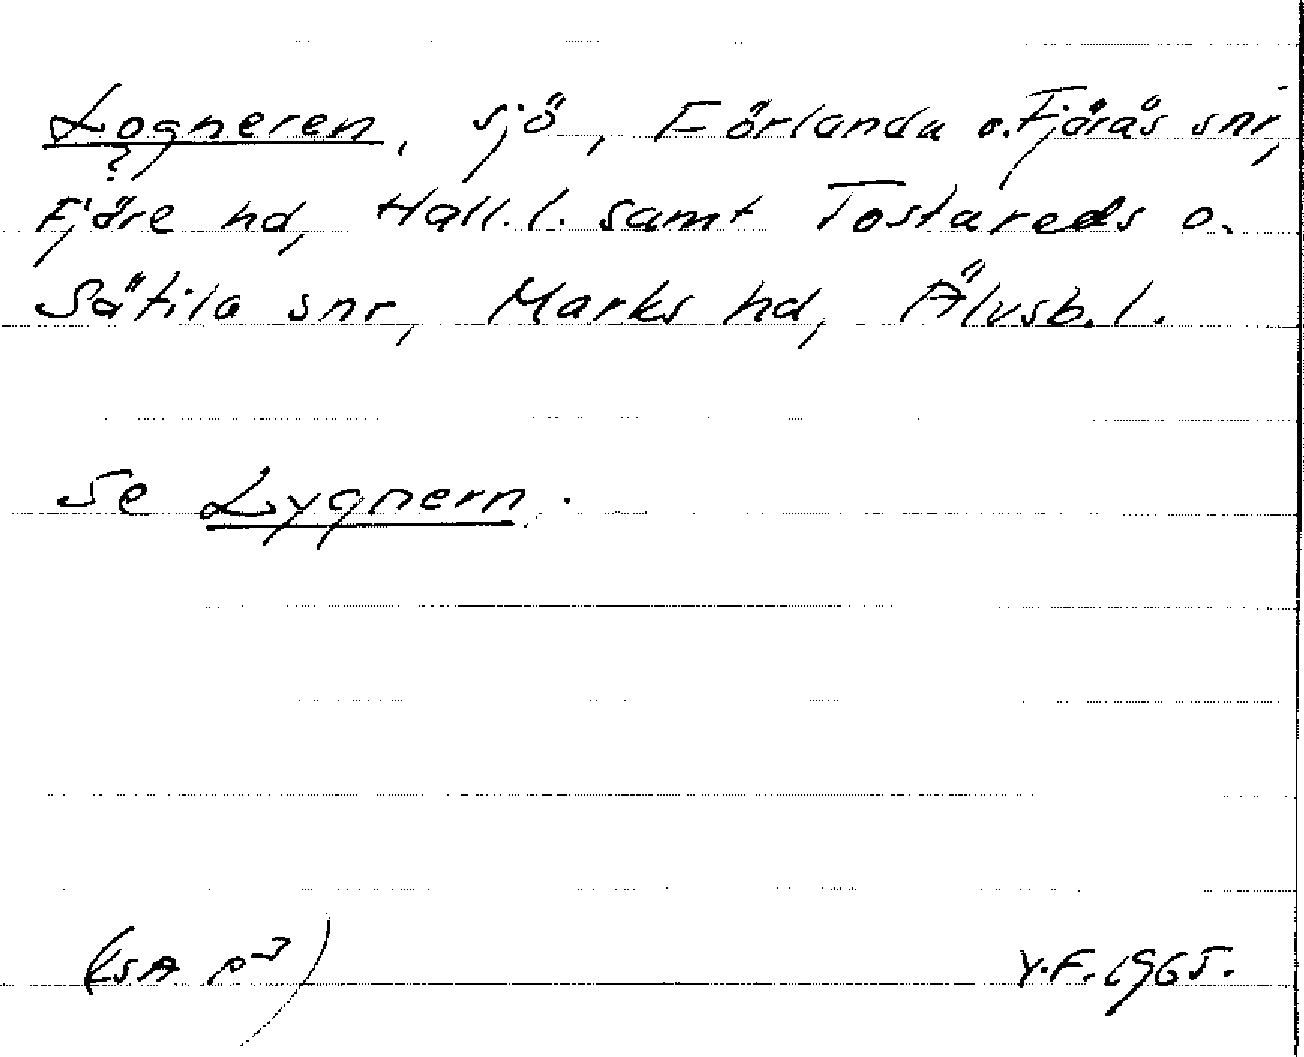 Logneren, sjö, Förlanda o. Fjärås snr,
?
Fjäre hd, Hall. l. samt Tostareds o.
Sätila snr, Marks hd, Älvsb. l.
Se Lygnern.
(KSA p³) Y.F. 1965.